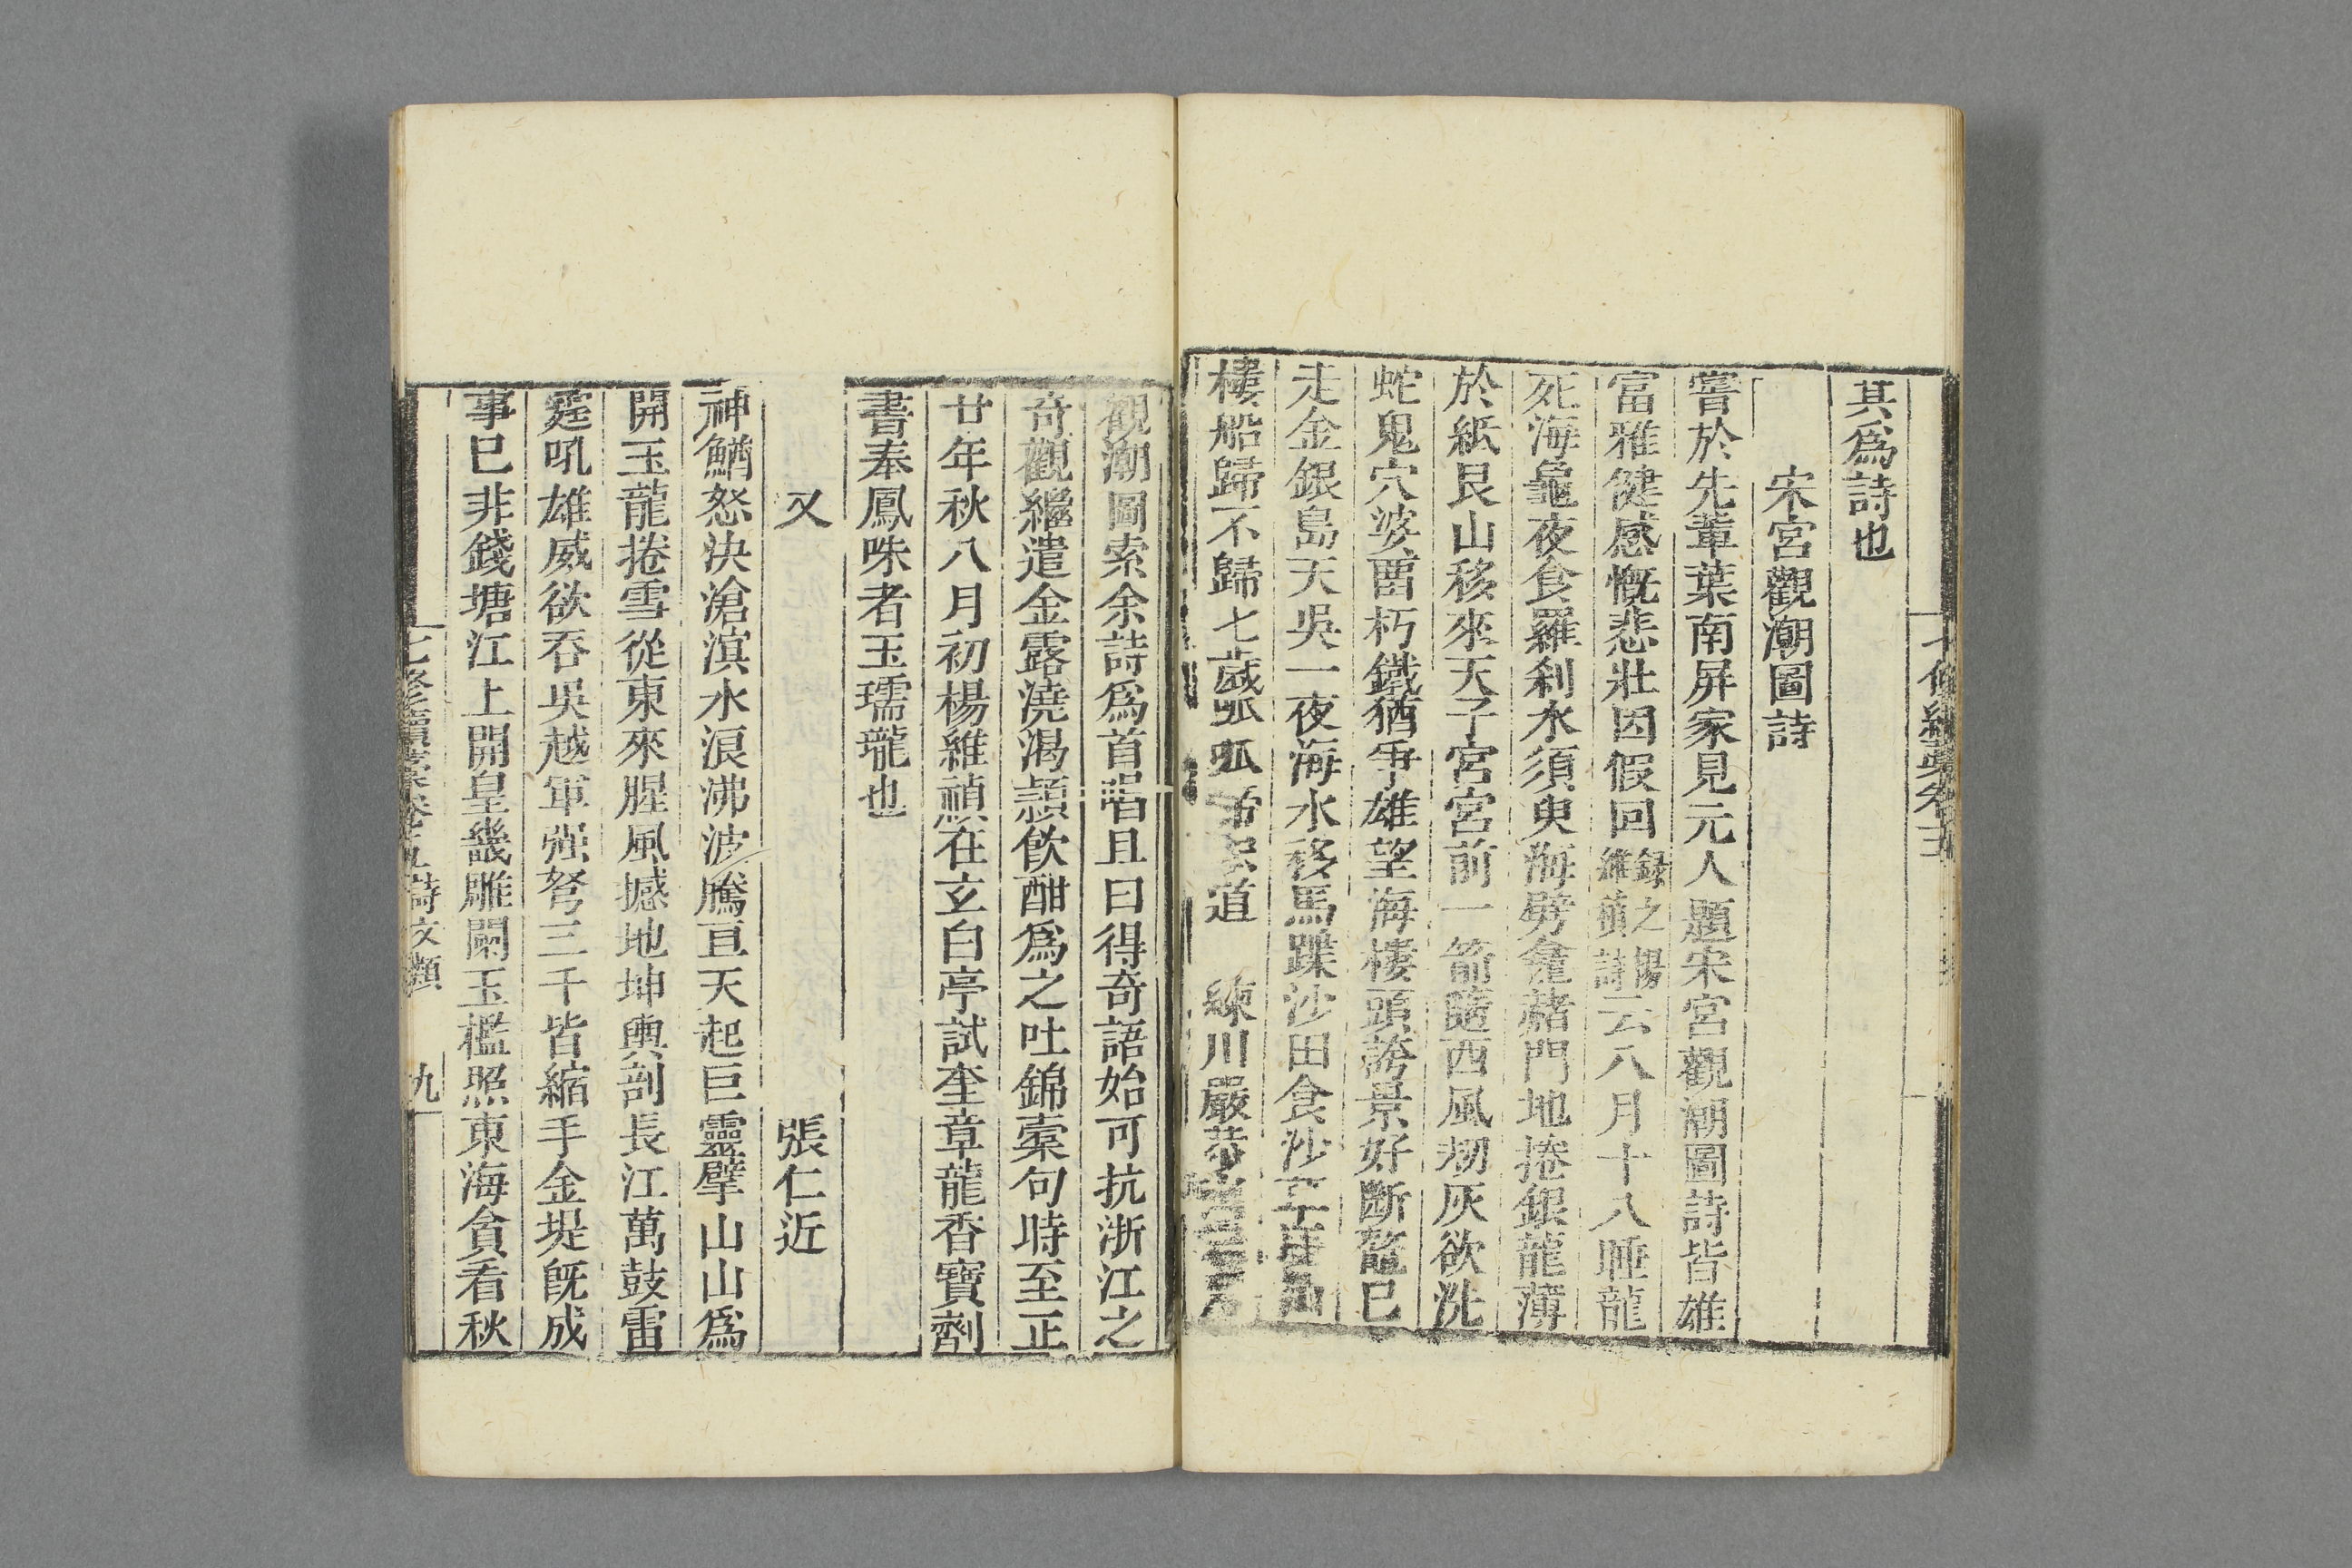 其爲詩也
宋宮觀潮圖詩
嘗於先輩葉南屏家見元人題宋宮觀潮圖詩皆雄
富雅健感慨悲壯因假回録之楊維禎詩云八月十八睡龍
死海龜夜食羅刹水須臾海劈龕赭門地捲銀龍薄
於紙艮山移來天子宮宮前一箭隨西風刼灰欲洗
蛇鬼穴婆畱朽鐵猶爭雄望海樓頭誇景好斷鰲已
走金銀島天吳一夜海水移馬蹀沙田食沙
樓船歸不歸七歲呱呱 道 練川嚴恭
觀潮圖索余詩爲首唱且曰得奇語始可抗浙江之
奇觀繼遣金露澆渴頴飲酣爲之吐錦槖句時至正
廿年秋八月初楊維禎在玄白亭試奎章龍香寶劑
書奉鳳咮者玉瓀瓏也
又 張仁近
神鰌怒決滄溟水浪沸波騰亘天起巨靈擘山山爲
開玉龍捲雪從東來腥風撼地坤輿剖長江萬鼓雷
霆吼雄威欲吞吳越軍强弩三千皆縮手金堤旣成
事已非錢塘江上開皇畿雕闌玉檻照東海貪看秋
七修續藁卷五 詩文類 九